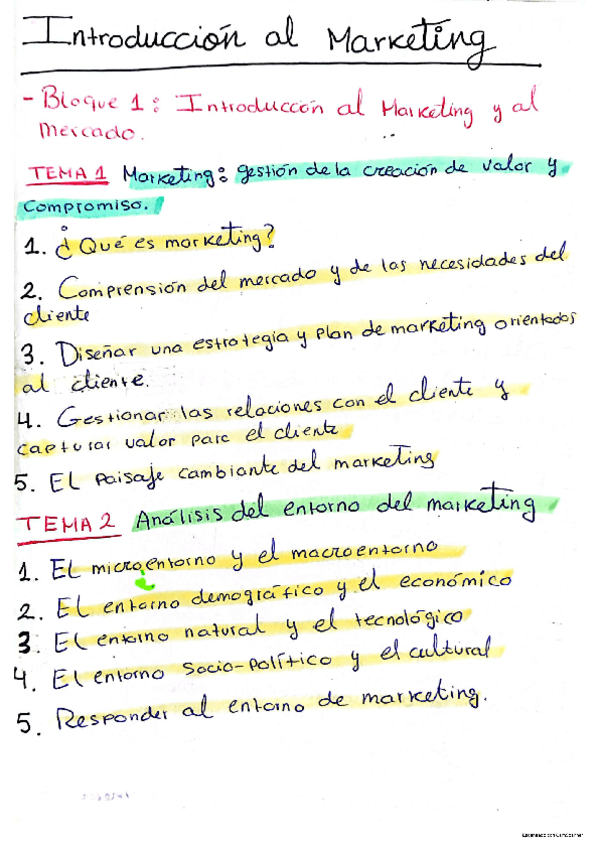 Introducción al Marketing
- Bloque 1: Introducción al Marketing y al
mercado.
TEMA 1 Marketing: gestión de la creación de valor y
compromiso.
1. ¿Qué es marketing?
2. Comprensión del mercado y de las necesidades del
cliente
3. Diseñar una estrategia y plan de marketing orientados
al cliente.
4. Gestionar las relaciones con el cliente y
capturar valor para el cliente
5. El paisaje cambiante del marketing
TEMA 2 Análisis del entorno del marketing
1. El microentorno y el macroentorno
2. El entorno demográfico y el económico
3. El entorno natural y el tecnológico
4. El entorno socio-político y el cultural
5. Responder al entorno de marketing.